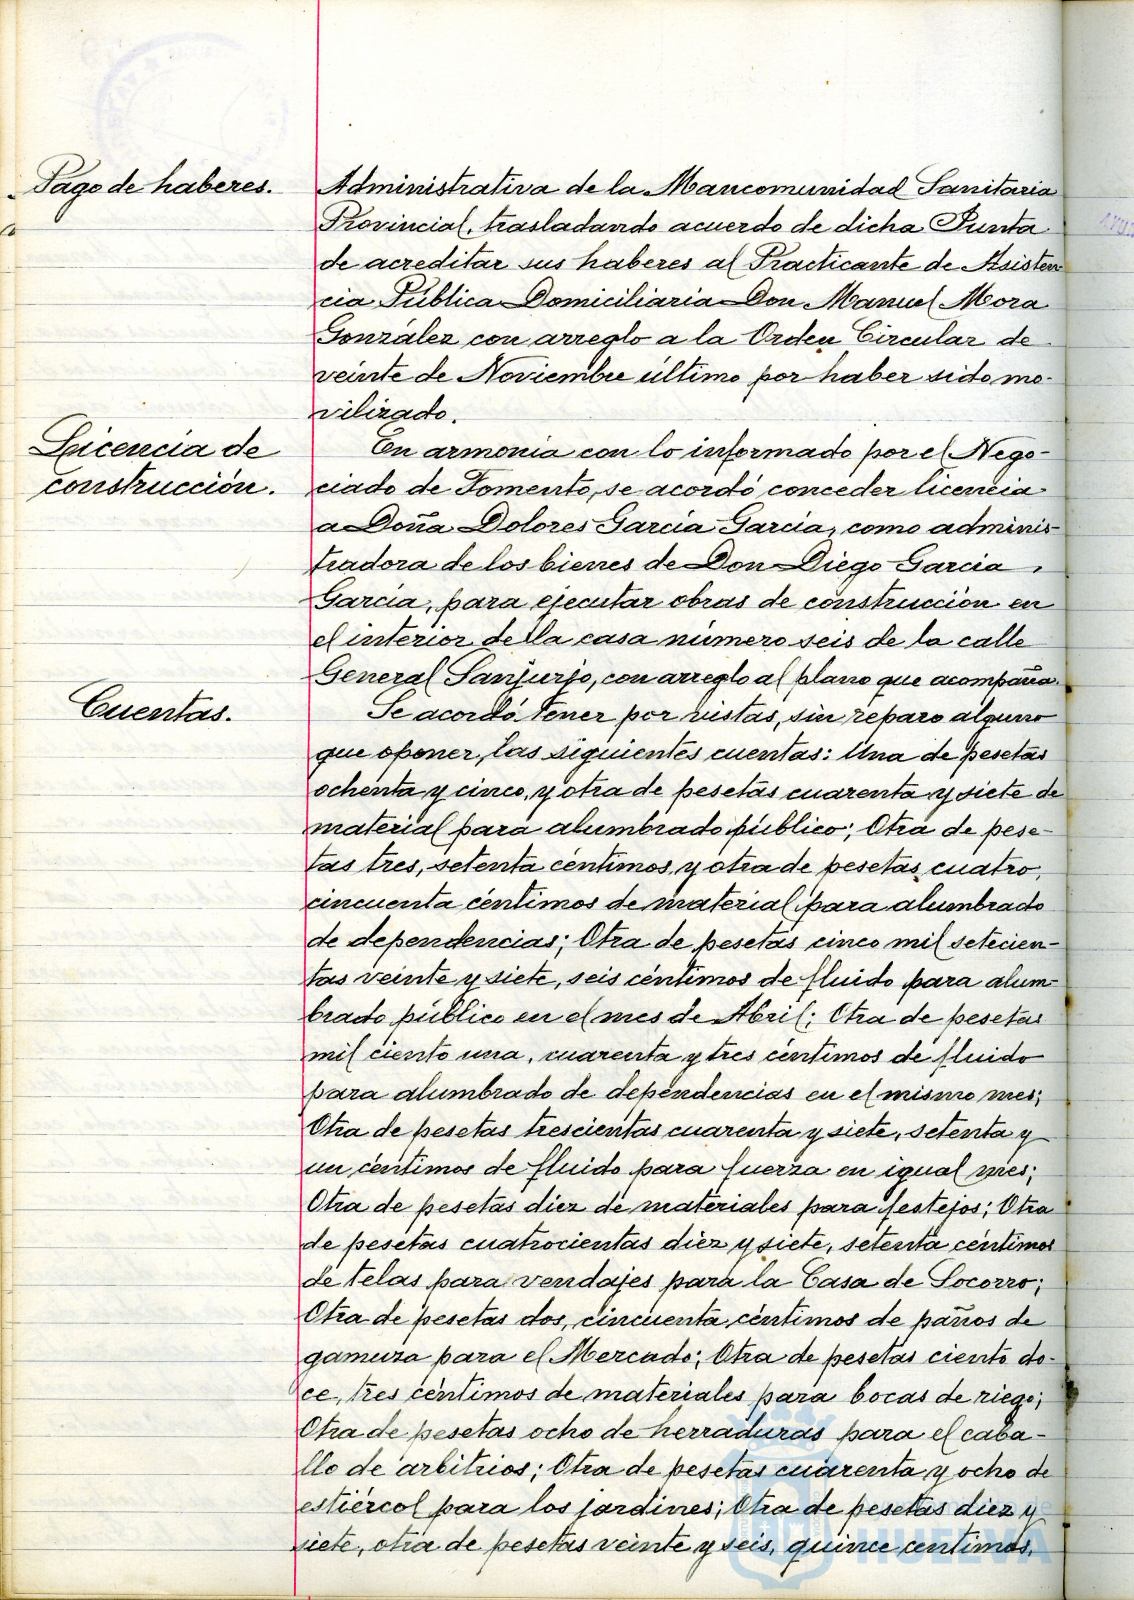 Pago de haberes.
Administrativa de la Mancomunidad Sanitaria
Provincial, trasladando acuerdo de dicha Junta
de acreditar sus haberes al Practicante de Asisten-
cia Pública Domiciliaria Don Manuel Mora
González con arreglo a la Orden Circular de
veinte de Noviembre último por haber sido mo-
vilizado.
Licencia de
construcción.
En armonia con lo informado por el Nego-
ciado de Fomento, se acordó conceder licencia
a Doña Dolores García García, como adminis-
tradora de los bienes de Don Diego Garcia
García, para ejecutar obras de construcción en
el interior de la casa número seis de la calle
General Sanjurjo, con arreglo al plano que acompaña.
Cuentas.
Se acordó tener por vistas, sin reparo alguno
que oponer, las siguientes cuentas: Una de pesetas
ochenta y cinco, y otra de pesetas cuarenta y siete de
material para alumbrado público; Otra de pese-
tas tres, setenta céntimos y otra de pesetas cuatro,
cincuenta céntimos de material para alumbrado
de dependencias; Otra de pesetas cinco mil setecien-
tas veinte y siete, seis céntimos de fluido para alum-
brado público en el mes de Abril; Otra de pesetas
mil ciento una, cuarenta y tres céntimos de fluido
para alumbrado de dependencias en el mismo mes;
Otra de pesetas trescientas cuarenta y siete, setenta y
un céntimos de fluido para fuerza en igual mes;
Otra de pesetas diez de materiales para festejos; Otra
de pesetas cuatrocientas diez y siete, setenta céntimos
de telas para vendajes para la Casa de Socorro;
Otra de pesetas dos, cincuenta céntimos de paños de
gamuza para el Mercado; Otra de pesetas ciento do-
ce, tres céntimos de materiales para bocas de riego;
Otra de pesetas ocho de herraduras para el caba-
llo de arbitrios; Otra de pesetas cuarenta y ocho de
estiércol para los jardines; Otra de pesetas diez y
siete, otra de pesetas veinte y seis, quince centimos,
HUELVA